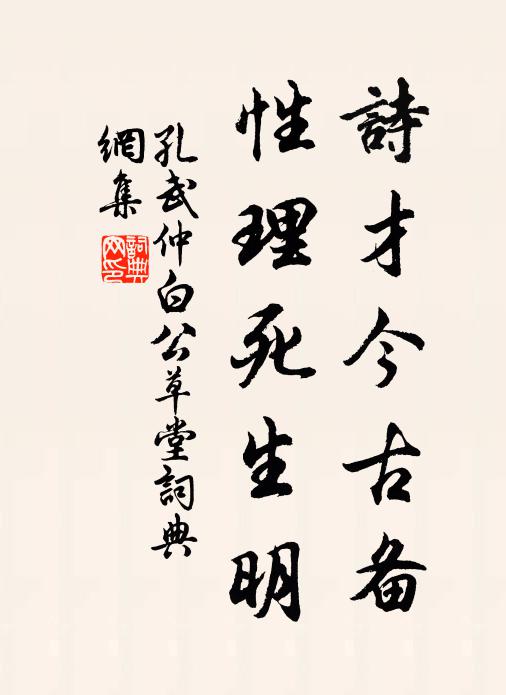 詩才今古备
性理死生明
孔武仲白公草堂詞典
網集
詞典
网印